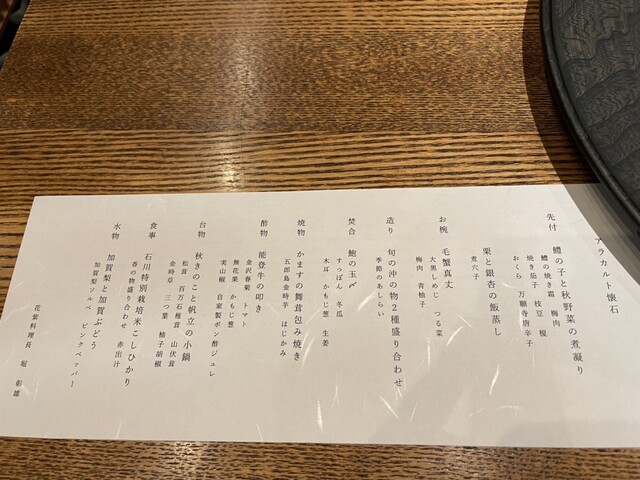 アラカルト懐石
先付 鱧の子と秋野菜の煮凝り
鱧の焼き霜 梅肉
焼き茄子 枝豆
おくら 万願寺唐辛子
栗と銀杏の飯蒸し
煮穴子
お椀 毛蟹真丈
大黒しめじ つる菜
梅肉 青柚子
造り 旬の沖の物2種盛り合わせ
季節のあしらい
焚合 鮑の玉〆
すっぽん 冬瓜
木耳 かもじ葱 生姜
焼物 かますの舞茸包み焼き
五郎島金時芋 はじかみ
酢物 能登牛の叩き
金沢春菊 トマト
無花果 かもじ葱
実山椒 自家製ポン酢ジュレ
台物 秋きのこと帆立の小鍋
松茸 百万石椎茸 山伏茸
金時草 三つ葉 柚子胡椒
食事 石川特別栽培米こしひかり
香の物盛り合わせ 赤出汁
水物 加賀梨と加賀ぶどう
加賀梨ソルベ ピンクペッパー
花紫料理長 堀 彰雄